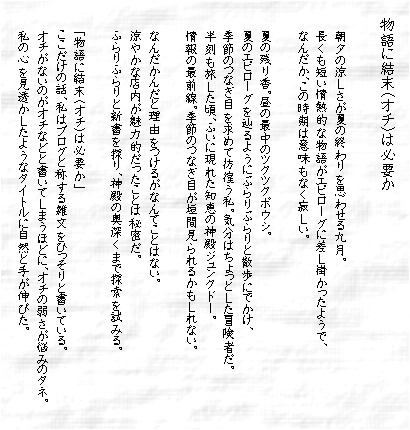 物語に結末（オチ）は必要か
朝夕の涼しさが夏の終わりを思わせる九月。
長くも短い情熱的な物語がエピローグに差し掛かったようで、
なんだか、この時期は意味もなく寂しい。
夏の残り香。昼の最中のツクツクボウシ。
夏のエピローグを辿るようにぶらりぶらりと散歩にでかけ、
季節のつなぎ目を求めて彷徨う私。気分はちょっとした冒険者だ。
半刻も旅した頃、ふいに現れた知恵の神殿ジュンクドー。
情報の最前線。季節のつなぎ目が垣間見られるかもしれない。
なんだかんだと理由をつけるがなんてことはない。
涼やかな店内が魅力的だったことは秘密だ。
ふらりふらりと新書を探り、神殿の奥深くまで探索を試みる。
「物語に結末（オチ）は必要か」
ここだけの話、私はブログと称する雑文をひっそりと書いている。
オチがないのがオチなどと書いてしまうほどに、オチの弱さが悩みのタネ。
私の心を見透かしたようなタイトルに自然と手が伸びた。